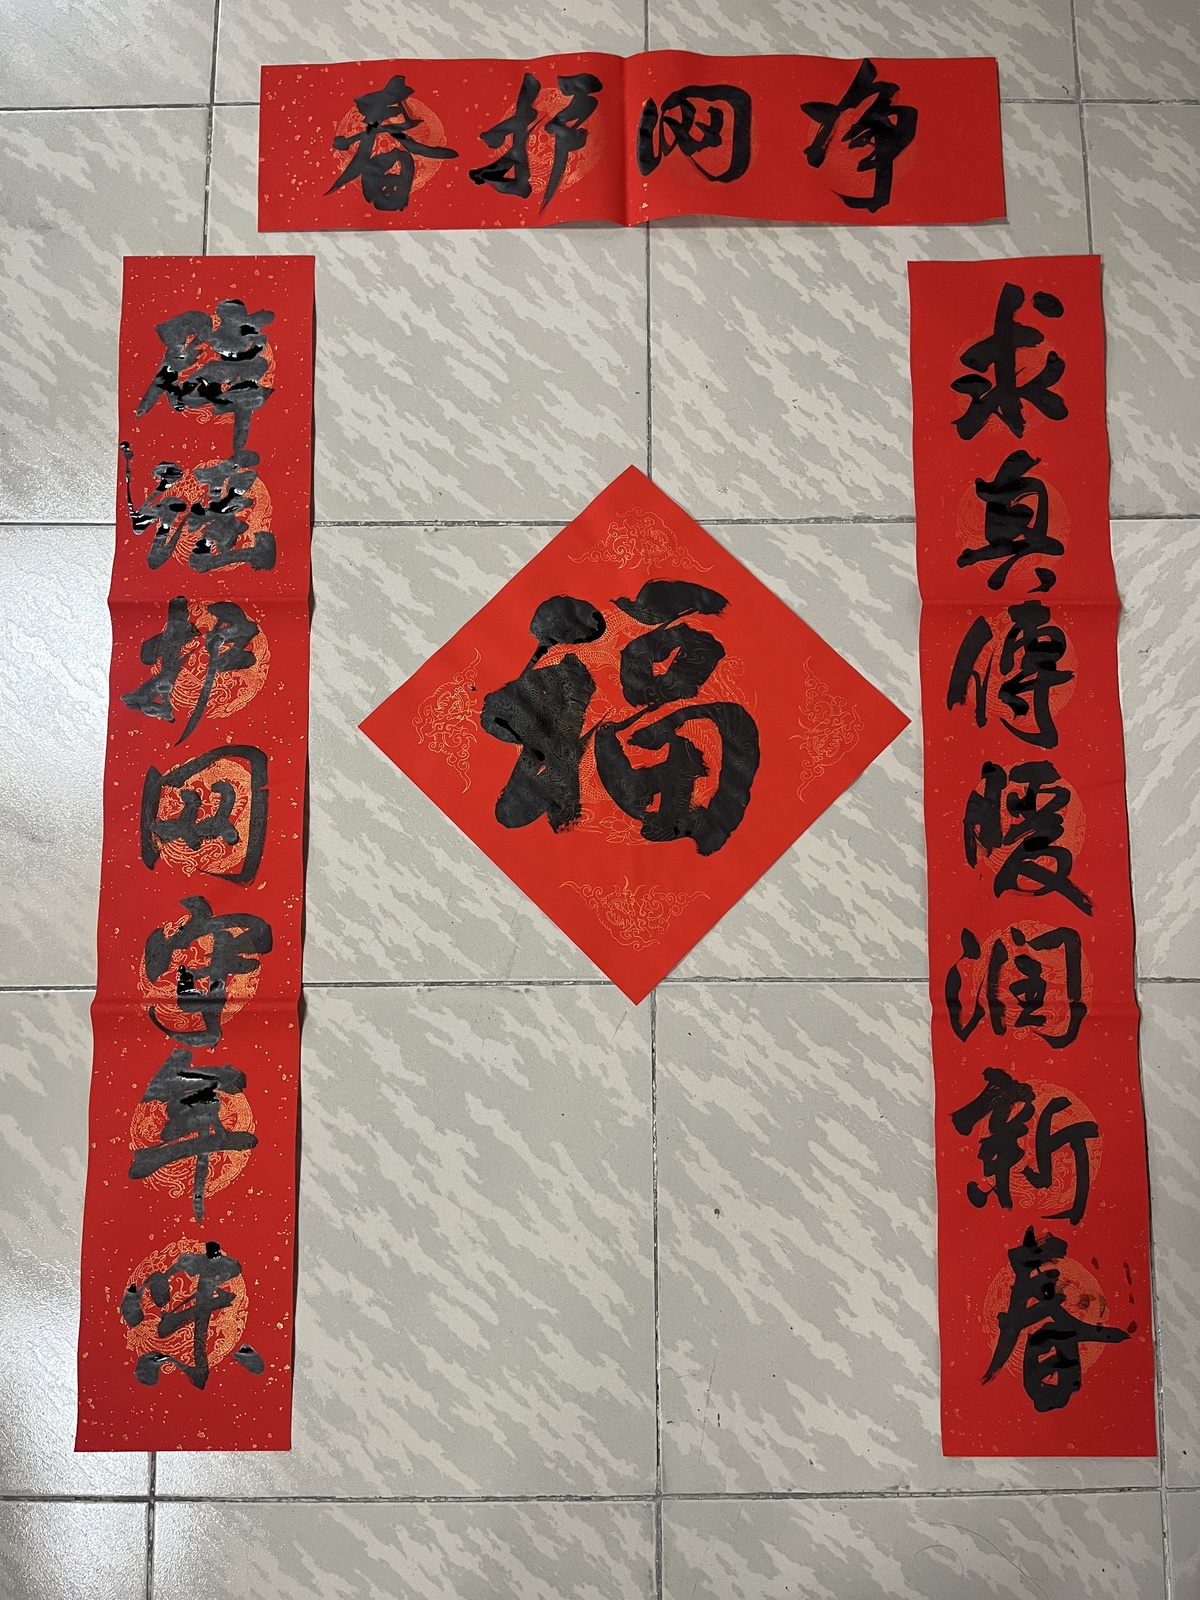 净网护春
求真傳暖润新春
福
辟谣护网守年味